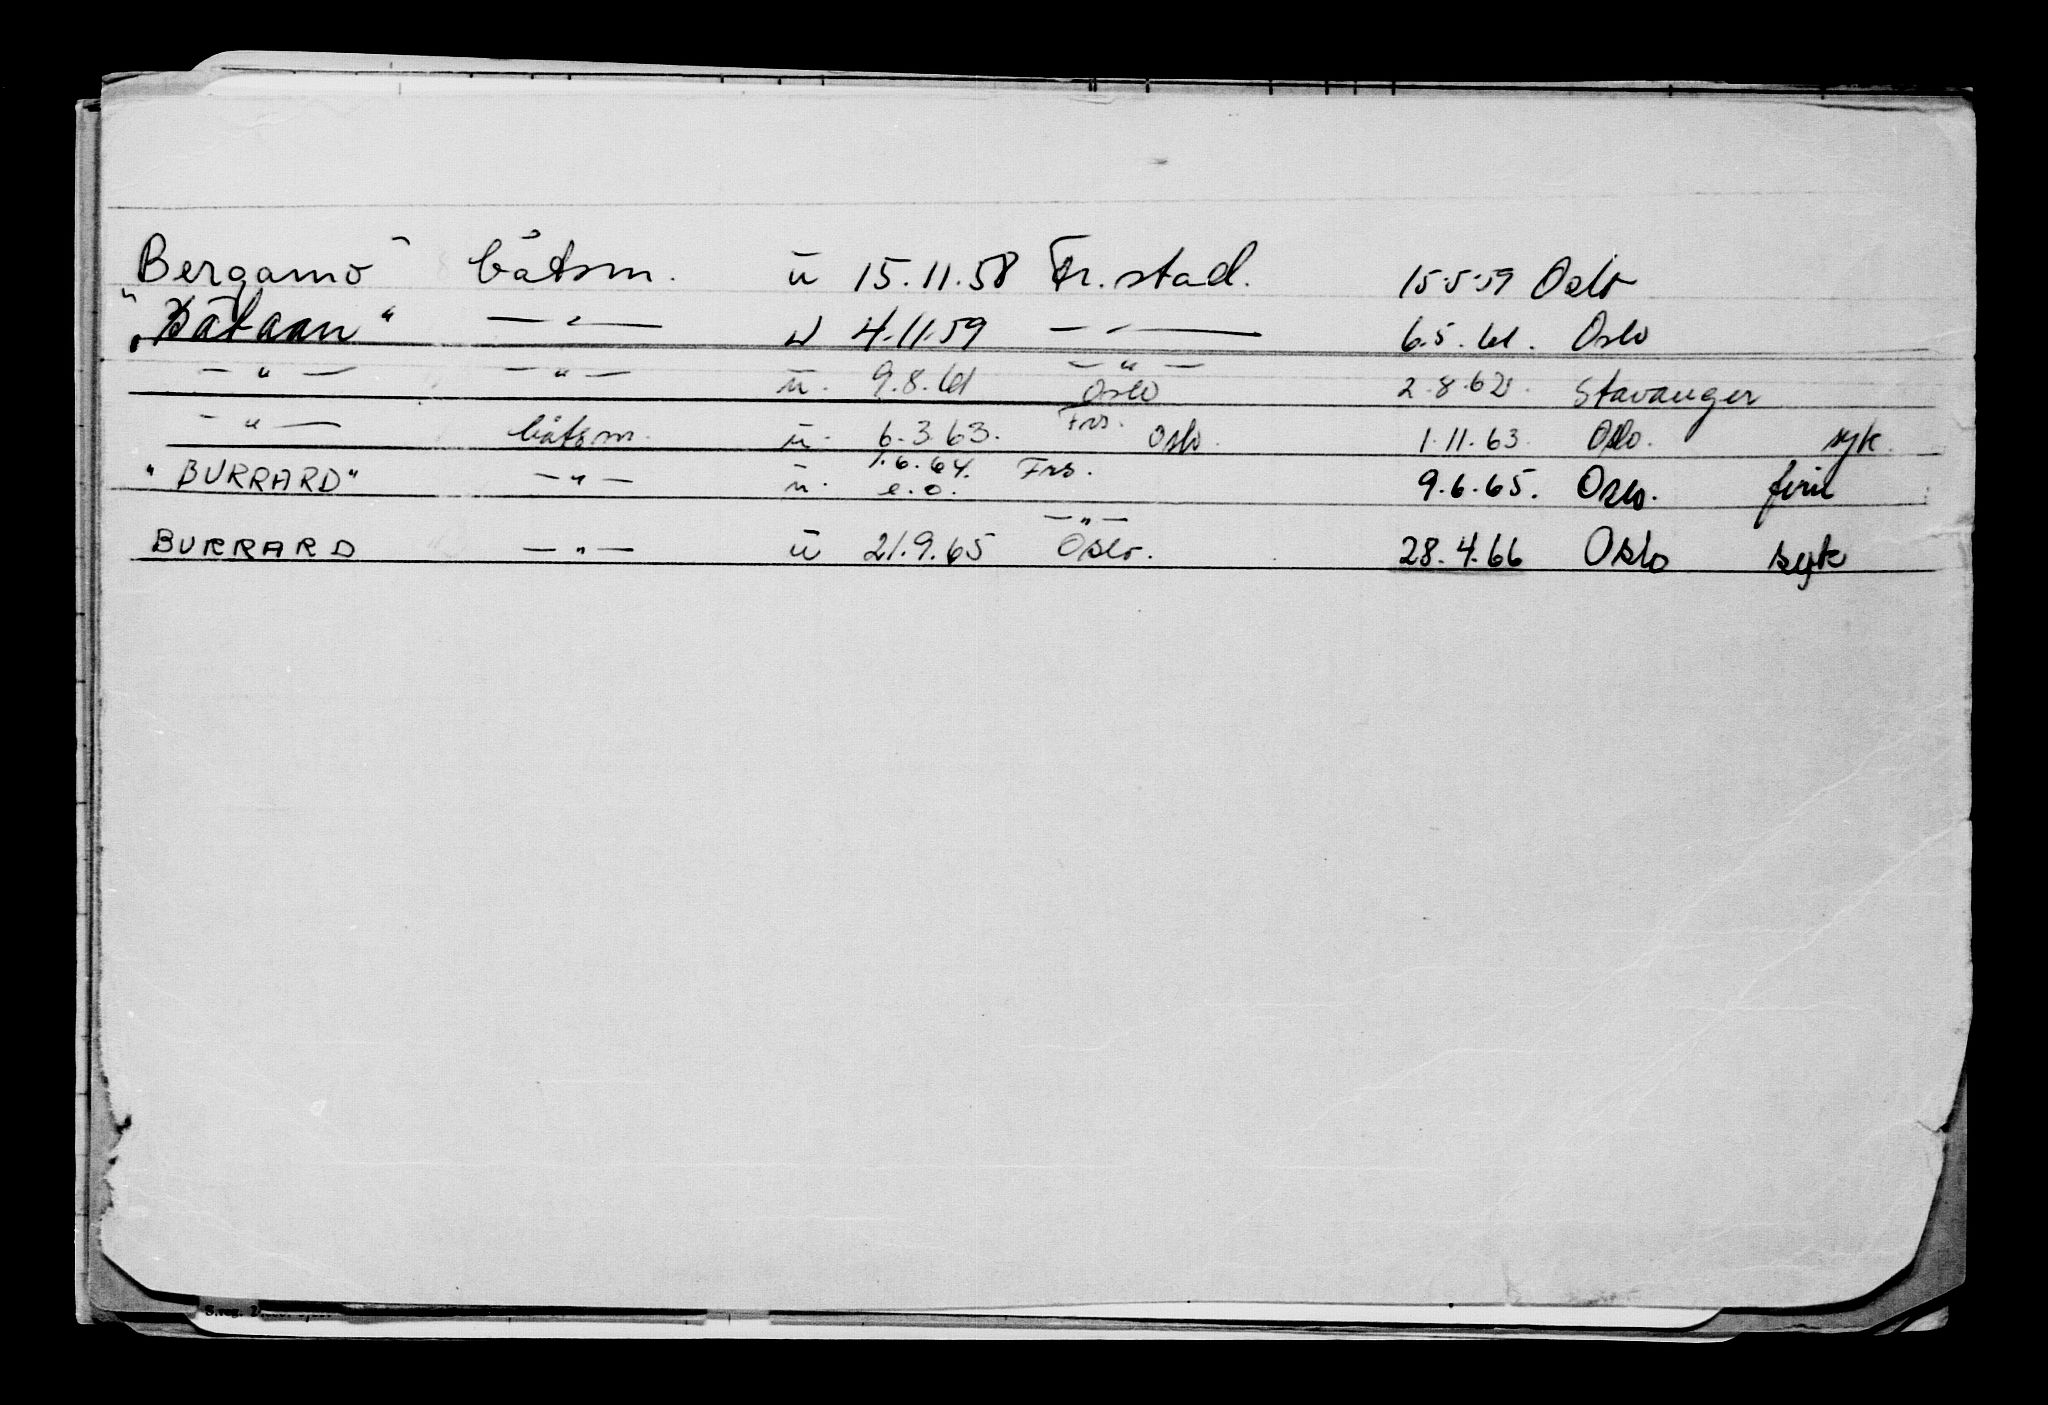 "Bergamo" båtsm. u 15.11.58 Fr.stad. 15.5.59 Oslo
"Bataan" — " — u 4.11.59 — " — 6.5.61. Oslo
— " — — " — u. 9.8.61 — " — Oslo 2.8.62. Stavanger
— " — båtsm. u. 6.3.63. Frs. Oslo. 1.11.63. Oslo. syk.
"BURRARD" — " — u. 1.6.64. e.o. Frs. 9.6.65. Oslo. ferie
BURRARD — " — u 21.9.65 — " — Oslo. 28.4.66 Oslo syk